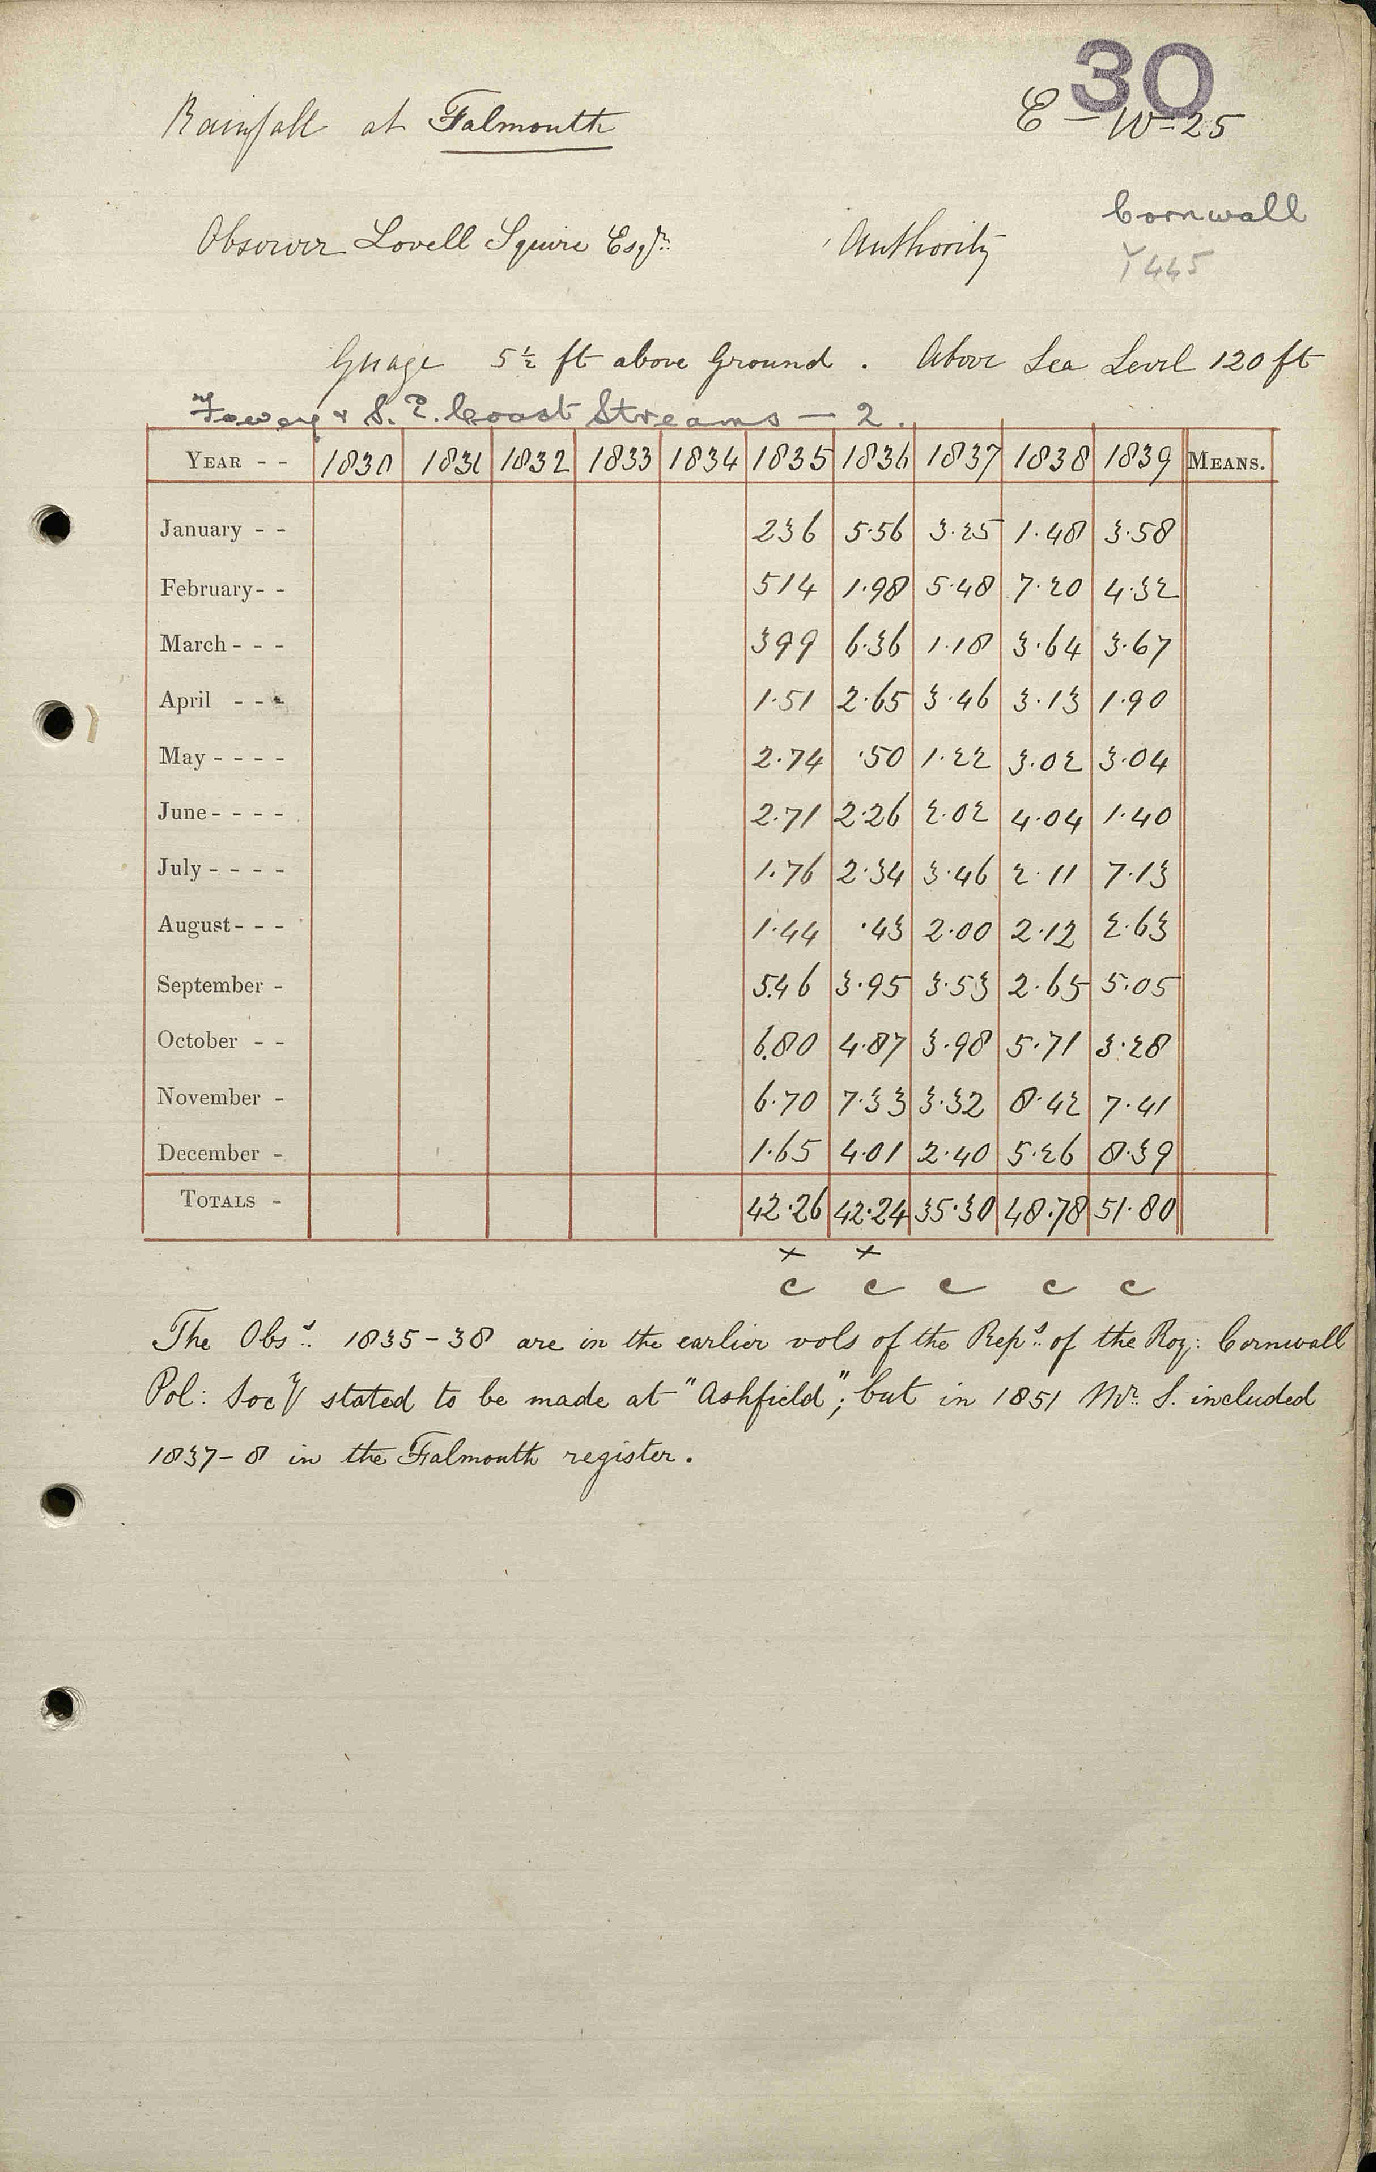 30
Rainfall at Falmouth E - W - 25
Cornwall
Observer Lovell Squire Esqr. Authority
Y445
Guage 5½ ft above Ground. Above Sea Level 120 ft
Fowey & S.E. Coast Streams - 2.
YEAR - - 1830 1831 1832 1833 1834 1835 1836 1837 1838 1839 MEANS.
January - - 236 5.56 3.25 1.48 3.58
February - - 514 1.98 5.48 7.20 4.32
March - - - 399 6.36 1.18 3.64 3.67
April - - - 1.51 2.65 3.46 3.13 1.90
May - - - - 2.74 .50 1.22 3.02 3.04
June - - - - 2.71 2.26 2.02 4.04 1.40
July - - - - 1.76 2.34 3.46 2.11 7.13
August - - - 1.44 .43 2.00 2.12 2.63
September - 5.46 3.95 3.53 2.65 5.05
October - - 6.80 4.87 3.98 5.71 3.28
November - 6.70 7.33 3.32 8.42 7.41
December - 1.65 4.01 2.40 5.26 8.39
TOTALS - 42.26 42.24 35.30 48.78 51.80
x x
c c c c c
The Obss. 1835-38 are in the earlier vols of the Reps. of the Roy: Cornwall
Pol: Socy stated to be made at "Ashfield"; but in 1851 Mr. S. included
1837-8 in the Falmouth register.